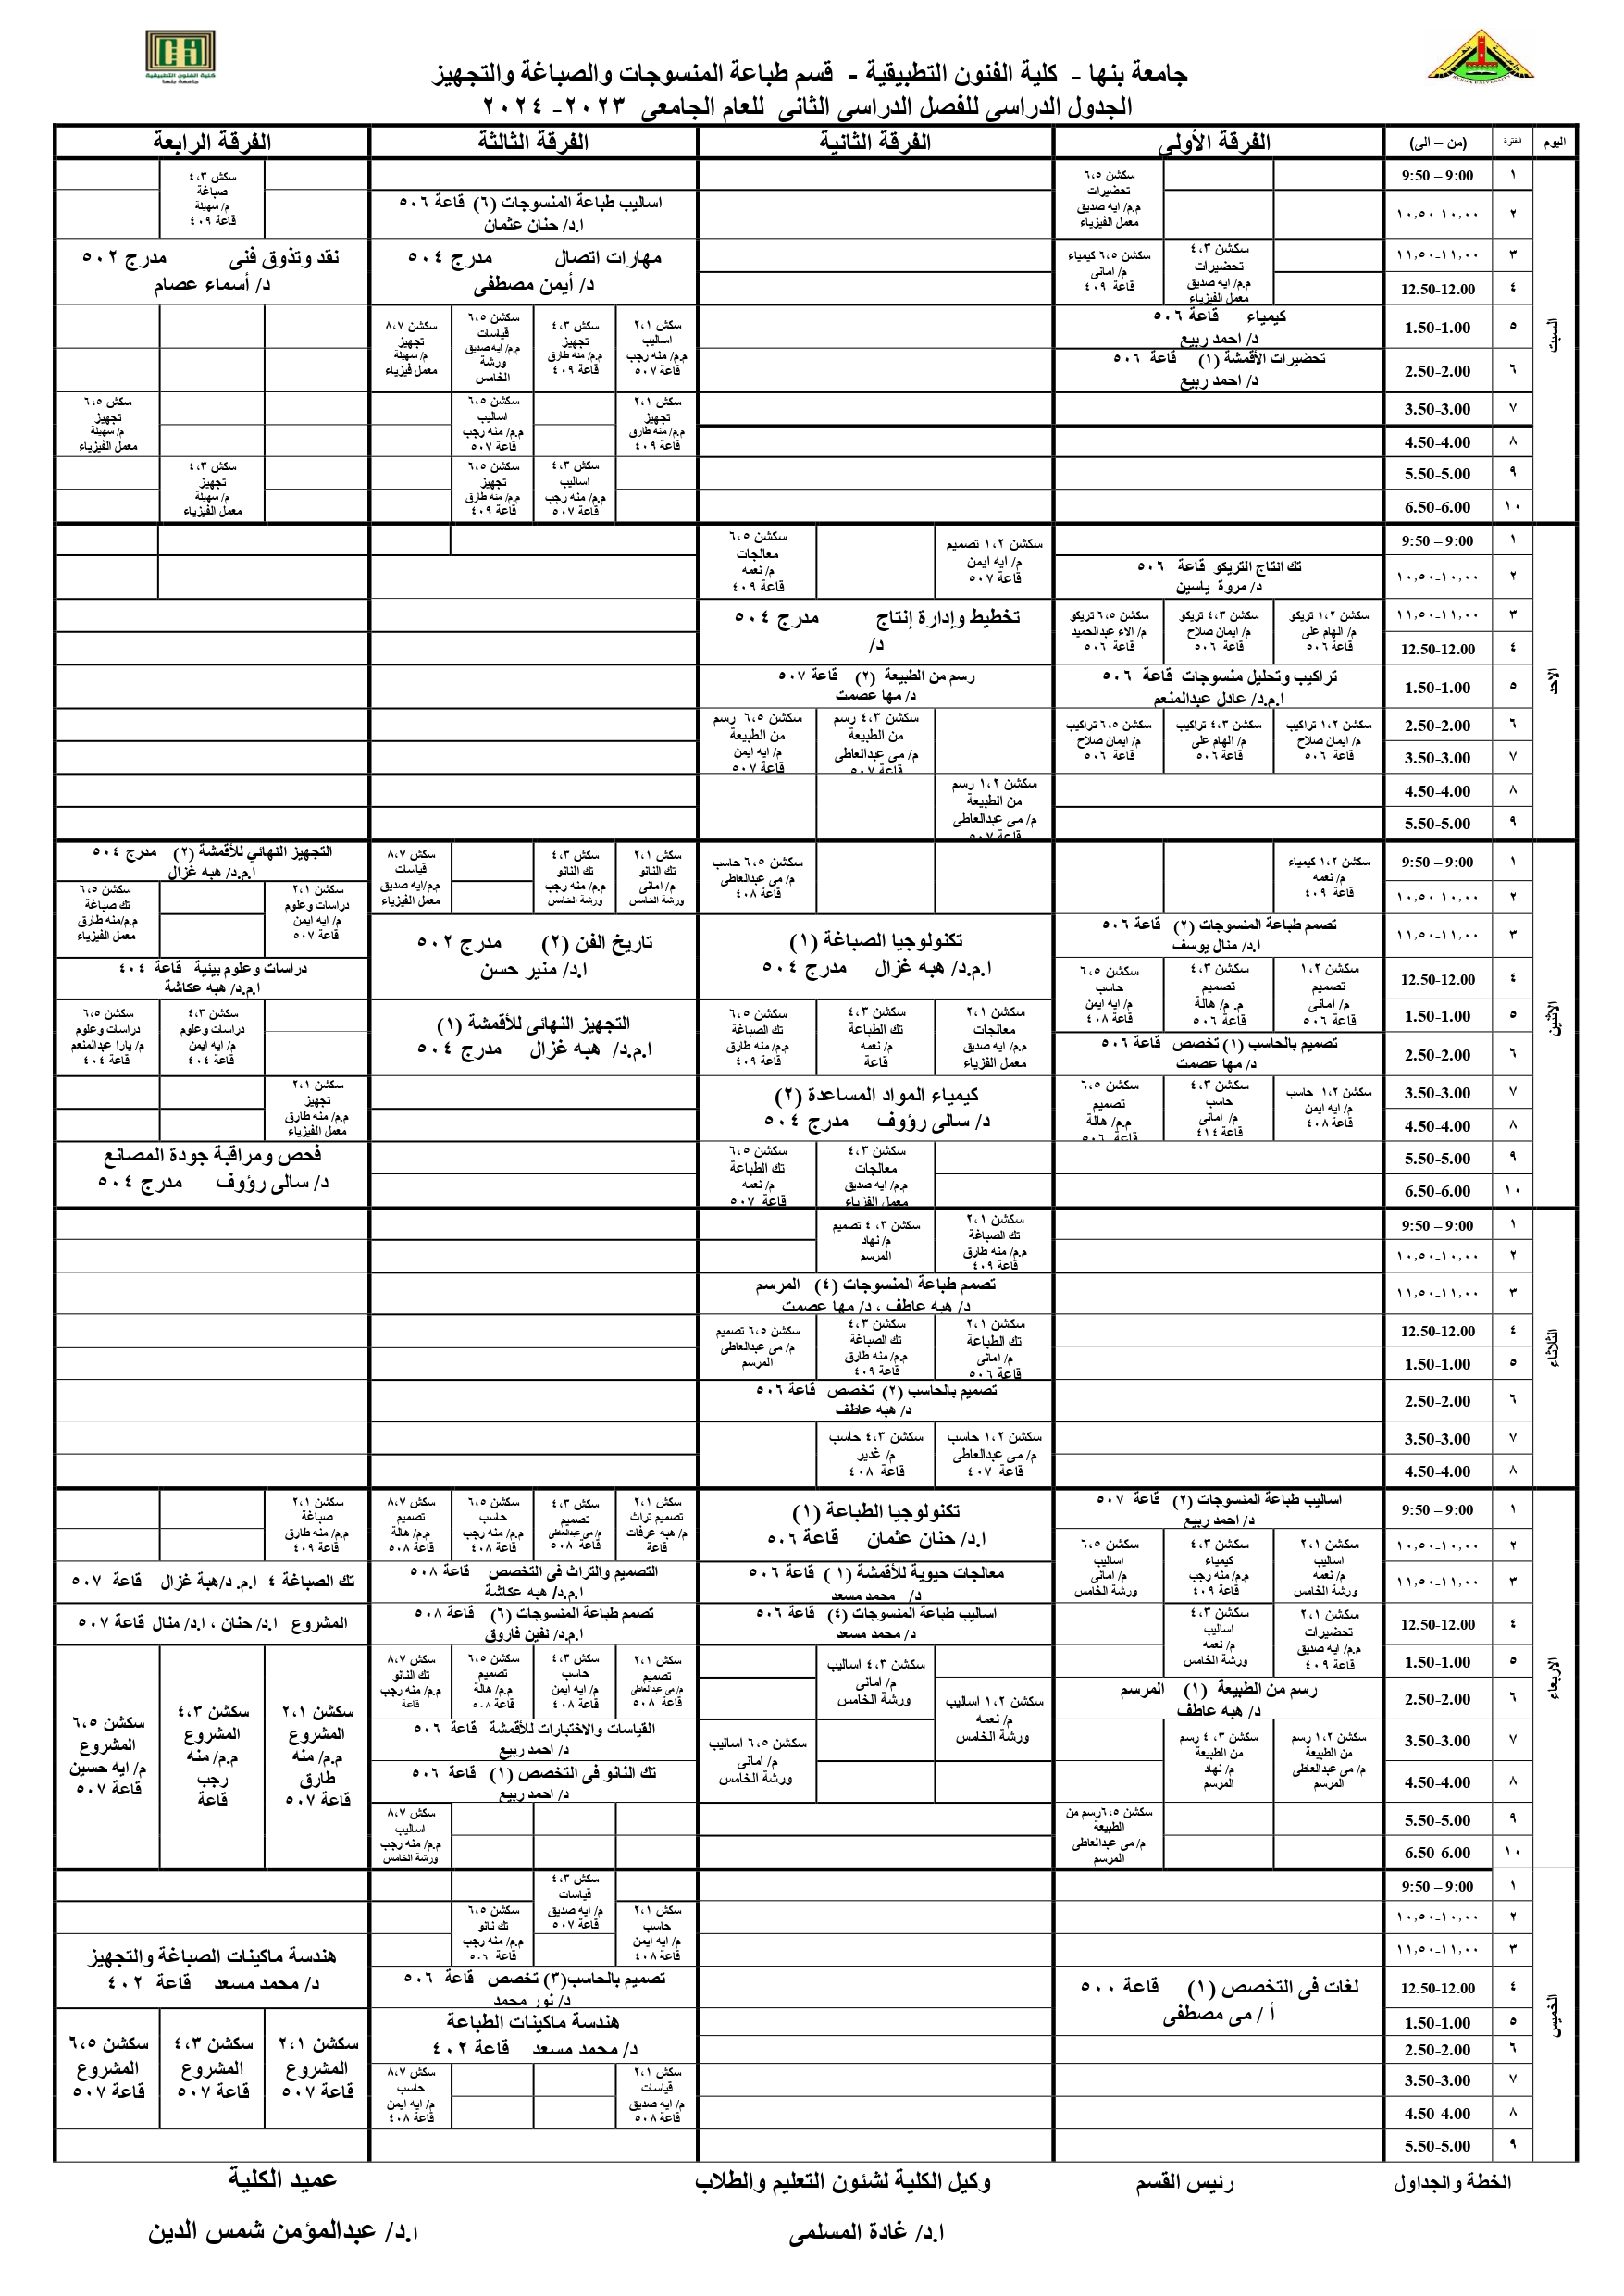 جامعة بنها - كلية الفنون التطبيقية - قسم طباعة المنسوجات والصباغة والتجهيز
الجدول الدراسى للفصل الدراسى الثانى للعام الجامعى ٢٠٢٣- ٢٠٢٤
اليوم
الفترة
(من – الى)
الفرقة الأولى
الفرقة الثانية
الفرقة الثالثة
الفرقة الرابعة
السبت
١
9:50 – 9:00
سكشن ٦،٥
تحضيرات
م.م/ ايه صديق
معمل الفيزياء
سكش ٤،٣
صباغة
م/ سهيلة
قاعة ٤٠٩
٢
١٠,٥٠-١٠,٠٠
اساليب طباعة المنسوجات (٦) قاعة ٥٠٦
ا.د/ حنان عثمان
٣
١١,٥٠-١١,٠٠
سكشن ٤،٣
تحضيرات
م.م/ ايه صديق
معمل الفيزياء
سكشن ٦،٥ كيمياء
م/ امانى
قاعة ٤٠٩
مهارات اتصال مدرج ٥٠٤
د/ أيمن مصطفى
نقد وتذوق فنى مدرج ٥٠٢
د/ أسماء عصام
٤
12.50-12.00
٥
1.50-1.00
كيمياء قاعة ٥٠٦
د/ احمد ربيع
سكش ٢،١
اساليب
م.م/ منه رجب
قاعة ٥٠٧
سكش ٤،٣
تجهيز
م.م/ منه طارق
قاعة ٤٠٩
سكشن ٦،٥
قياسات
م.م/ ايه صديق
ورشة
الخامس
سكشن ٨،٧
تجهيز
م/ سهيلة
معمل فيزياء
٦
2.50-2.00
تحضيرات الأقمشة (١) قاعة ٥٠٦
د/ احمد ربيع
٧
3.50-3.00
سكش ٢،١
تجهيز
م.م/ منه طارق
قاعة ٤٠٩
سكشن ٦،٥
اساليب
م.م/ منه رجب
قاعة ٥٠٧
سكش ٦،٥
تجهيز
م/ سهيلة
معمل الفيزياء
٨
4.50-4.00
٩
5.50-5.00
سكش ٤،٣
اساليب
م.م/ منه رجب
قاعة ٥٠٧
سكشن ٦،٥
تجهيز
م.م/ منه طارق
قاعة ٤٠٩
سكش ٤،٣
تجهيز
م/ سهيلة
معمل الفيزياء
١٠
6.50-6.00
الاحد
١
9:50 – 9:00
سكشن ١،٢ تصميم
م/ ايه ايمن
قاعة ٥٠٧
سكشن ٦،٥
معالجات
م/ نعمه
قاعة ٤٠٩
٢
١٠,٥٠-١٠,٠٠
تك انتاج التريكو قاعة ٥٠٦
د/ مروة ياسين
٣
١١,٥٠-١١,٠٠
سكشن ١،٢ تريكو
م/ الهام على
قاعة ٥٠٦
سكشن ٤،٣ تريكو
م/ ايمان صلاح
قاعة ٥٠٦
سكشن ٦،٥ تريكو
م/ الاء عبدالحميد
قاعة ٥٠٦
تخطيط وإدارة إنتاج مدرج ٥٠٤
د/
٤
12.50-12.00
٥
1.50-1.00
تراكيب وتحليل منسوجات قاعة ٥٠٦
ا.م.د/ عادل عبدالمنعم
رسم من الطبيعة (٢) قاعة ٥٠٧
د/ مها عصمت
٦
2.50-2.00
سكشن ١،٢ تراكيب
م/ ايمان صلاح
قاعة ٥٠٦
سكشن ٤،٣ تراكيب
م/ الهام على
قاعة ٥٠٦
سكشن ٦،٥ تراكيب
م/ ايمان صلاح
قاعة ٥٠٦
سكشن ٤،٣ رسم
من الطبيعة
م/ مى عبدالعاطى
قاعة ٥٠٧
سكشن ٦،٥ رسم
من الطبيعة
م/ ايه ايمن
قاعة ٥٠٧
٧
3.50-3.00
٨
4.50-4.00
سكشن ١،٢ رسم
من الطبيعة
م/ مى عبدالعاطى
قاعة ٥٠٧
٩
5.50-5.00
الاثنين
١
9:50 – 9:00
سكشن ١،٢ كيمياء
م/ نعمه
قاعة ٤٠٩
سكشن ٦،٥ حاسب
م/ مى عبدالعاطى
قاعة ٤٠٨
سكش ٢،١
تك النانو
م/ امانى
ورشة الخامس
سكش ٤،٣
تك النانو
م.م/ منه رجب
ورشة الخامس
سكش ٨،٧
قياسات
م.م/ايه صديق
معمل الفيزياء
التجهيز النهائي للأقمشة (٢) مدرج ٥٠٤
ا.م.د/ هبه غزال
٢
١٠,٥٠-١٠,٠٠
سكشن ٢،١
دراسات وعلوم
م/ ايه ايمن
قاعة ٥٠٧
سكشن ٦،٥
تك صباغة
م.م/منه طارق
معمل الفيزياء
٣
١١,٥٠-١١,٠٠
تصمم طباعة المنسوجات (٢) قاعة ٥٠٦
ا.د/ منال يوسف
تكنولوجيا الصباغة (١)
ا.م.د/ هبه غزال مدرج ٥٠٤
تاريخ الفن (٢) مدرج ٥٠٢
ا.د/ منير حسن
٤
12.50-12.00
سكشن ١،٢
تصميم
م/ امانى
قاعة ٥٠٦
سكشن ٤،٣
تصميم
م. م/ هالة
قاعة ٥٠٦
سكشن ٦،٥
حاسب
م/ ايه ايمن
قاعة ٤٠٨
دراسات وعلوم بيئية قاعة ٤٠٤
ا.م.د/ هبه عكاشة
٥
1.50-1.00
سكشن ٢،١
معالجات
م.م/ ايه صديق
معمل الفزياء
سكشن ٤،٣
تك الطباعة
م/ نعمه
قاعة
سكشن ٦،٥
تك الصباغة
م.م/ منه طارق
قاعة ٤٠٩
التجهيز النهائي للأقمشة (١)
ا.م.د/ هبه غزال مدرج ٥٠٤
سكشن ٤،٣
دراسات وعلوم
م/ ايه ايمن
قاعة ٤٠٤
سكشن ٦،٥
دراسات وعلوم
م/ يارا عبدالمنعم
قاعة ٤٠٤
٦
2.50-2.00
تصميم بالحاسب (١) تخصص قاعة ٥٠٦
د/ مها عصمت
٧
3.50-3.00
سكشن ١،٢ حاسب
م/ ايه ايمن
قاعة ٤٠٨
سكشن ٤،٣
حاسب
م/ امانى
قاعة ٤١٤
سكشن ٦،٥
تصميم
م.م/ هالة
قاعة ٥٠٦
كيمياء المواد المساعدة (٢)
د/ سالى رؤوف مدرج ٥٠٤
سكشن ٢،١
تجهيز
م.م/ منه طارق
معمل الفيزياء
٨
4.50-4.00
٩
5.50-5.00
سكشن ٤،٣
معالجات
م.م/ ايه صديق
معمل الفزياء
سكشن ٦،٥
تك الطباعة
م/ نعمه
قاعة ٥٠٧
فحص ومراقبة جودة المصانع
د/ سالى رؤوف مدرج ٥٠٤
١٠
6.50-6.00
الثلاثاء
١
9:50 – 9:00
سكشن ٢،١
تك الصباغة
م.م/ منه طارق
قاعة ٤٠٩
سكشن ٤،٣ تصميم
م/ نهاد
المرسم
٢
١٠,٥٠-١٠,٠٠
٣
١١,٥٠-١١,٠٠
تصمم طباعة المنسوجات (٤) المرسم
د/ هبه عاطف ، د/ مها عصمت
٤
12.50-12.00
سكشن ٢،١
تك الطباعة
م/ امانى
قاعة ٥٠٦
سكشن ٤،٣
تك الصباغة
م.م/ منه طارق
قاعة ٤٠٩
سكشن ٦،٥ تصميم
م/ مى عبدالعاطى
المرسم
٥
1.50-1.00
٦
2.50-2.00
تصميم بالحاسب (٢) تخصص قاعة ٥٠٦
د/ هبه عاطف
٧
3.50-3.00
سكشن ١،٢ حاسب
م/ مى عبدالعاطى
قاعة ٤٠٧
سكشن ٤،٣ حاسب
م/ غدير
قاعة ٤٠٨
٨
4.50-4.00
الاربعاء
١
9:50 – 9:00
اساليب طباعة المنسوجات (٢) قاعة ٥٠٧
د/ احمد ربيع
تكنولوجيا الطباعة (١)
ا.د/ حنان عثمان قاعة ٥٠٦
سكش ٢،١
تصميم تراث
م/ هبه عرفات
قاعة
سكش ٤،٣
تصميم
م/ مى عبدالعاطى
قاعة ٥٠٨
سكشن ٦،٥
حاسب
م.م/ منه رجب
قاعة ٤٠٨
سكش ٨،٧
تصميم
م.م/ هالة
قاعة ٥٠٨
سكشن ٢،١
صباغة
م.م/ منه طارق
قاعة ٤٠٩
٢
١٠,٥٠-١٠,٠٠
سكشن ٢،١
اساليب
م/ نعمه
ورشة الخامس
سكشن ٤،٣
كيمياء
م.م/ منه رجب
قاعة ٤٠٩
سكشن ٦،٥
اساليب
م/ امانى
ورشة الخامس
٣
١١,٥٠-١١,٠٠
معالجات حيوية للأقمشة (١ ) قاعة ٥٠٦
د/ محمد مسعد
التصميم والتراث فى التخصص قاعة ٥٠٨
ا.م.د/ هبه عكاشة
تك الصباغة ٤ ا.م. د/هبة غزال قاعة ٥٠٧
٤
12.50-12.00
سكشن ٢،١
تحضيرات
م.م/ ايه صديق
قاعة ٤٠٩
سكشن ٤،٣
اساليب
م/ نعمه
ورشة الخامس
اساليب طباعة المنسوجات (٤) قاعة ٥٠٦
د/ محمد مسعد
تصمم طباعة المنسوجات (٦) قاعة ٥٠٨
ا.م.د/ نفين فاروق
المشروع ا.د/ حنان ، ا.د/ منال قاعة ٥٠٧
٥
1.50-1.00
سكشن ٤،٣ اساليب
م/ امانى
ورشة الخامس
سكش ٢،١
تصميم
م/ مى عبدالعاطى
قاعة ٥٠٨
سكش ٤،٣
حاسب
م/ ايه ايمن
قاعة ٤٠٨
سكشن ٦،٥
تصميم
م.م/ هالة
قاعة ٥٠٨
سكش ٨،٧
تك النانو
م.م/ منه رجب
قاعة
سكشن ٢،١
المشروع
م.م/ منه
طارق
قاعة ٥٠٧
سكشن ٤،٣
المشروع
م.م/ منه
رجب
قاعة
سكشن ٦،٥
المشروع
م/ ايه حسين
قاعة ٥٠٧
٦
2.50-2.00
رسم من الطبيعة (١) المرسم
د/ هبه عاطف
سكشن ١،٢ اساليب
م/ نعمه
ورشة الخامس
٧
3.50-3.00
سكشن ١،٢ رسم
من الطبيعة
م/ مى عبدالعاطى
المرسم
سكشن ٤،٣ رسم
من الطبيعة
م/ نهاد
المرسم
سكشن ٦،٥ اساليب
م/ امانى
ورشة الخامس
القياسات والاختبارات للأقمشة قاعة ٥٠٦
د/ احمد ربيع
٨
4.50-4.00
تك النانو فى التخصص (١) قاعة ٥٠٦
د/ احمد ربيع
٩
5.50-5.00
سكشن ٦،٥رسم من
الطبيعة
م/ مى عبدالعاطى
المرسم
سكش ٨،٧
اساليب
م.م/ منه رجب
ورشة الخامس
١٠
6.50-6.00
الخميس
١
9:50 – 9:00
سكش ٤،٣
قياسات
م/ ايه صديق
قاعة ٥٠٧
٢
١٠,٥٠-١٠,٠٠
سكش ٢،١
حاسب
م/ ايه ايمن
قاعة ٤٠٨
سكشن ٦،٥
تك نانو
م.م/ منه رجب
قاعة ٥٠٦
٣
١١,٥٠-١١,٠٠
هندسة ماكينات الصباغة والتجهيز
د/ محمد مسعد قاعة ٤٠٢
٤
12.50-12.00
لغات فى التخصص (١) قاعة ٥٠٠
أ / مى مصطفى
تصميم بالحاسب(٣) تخصص قاعة ٥٠٦
د/ نور محمد
٥
1.50-1.00
هندسة ماكينات الطباعة
د/ محمد مسعد قاعة ٤٠٢
سكشن ٢،١
المشروع
قاعة ٥٠٧
سكشن ٤،٣
المشروع
قاعة ٥٠٧
سكشن ٦،٥
المشروع
قاعة ٥٠٧
٦
2.50-2.00
٧
3.50-3.00
سكش ٢،١
قياسات
م/ ايه صديق
قاعة ٥٠٨
سكش ٨،٧
حاسب
م/ ايه ايمن
قاعة ٤٠٨
٨
4.50-4.00
٩
5.50-5.00
الخطة والجداول
رئيس القسم
وكيل الكلية لشئون التعليم والطلاب
عميد الكلية
ا.د/ غادة المسلمى
ا.د/ عبدالمؤمن شمس الدين